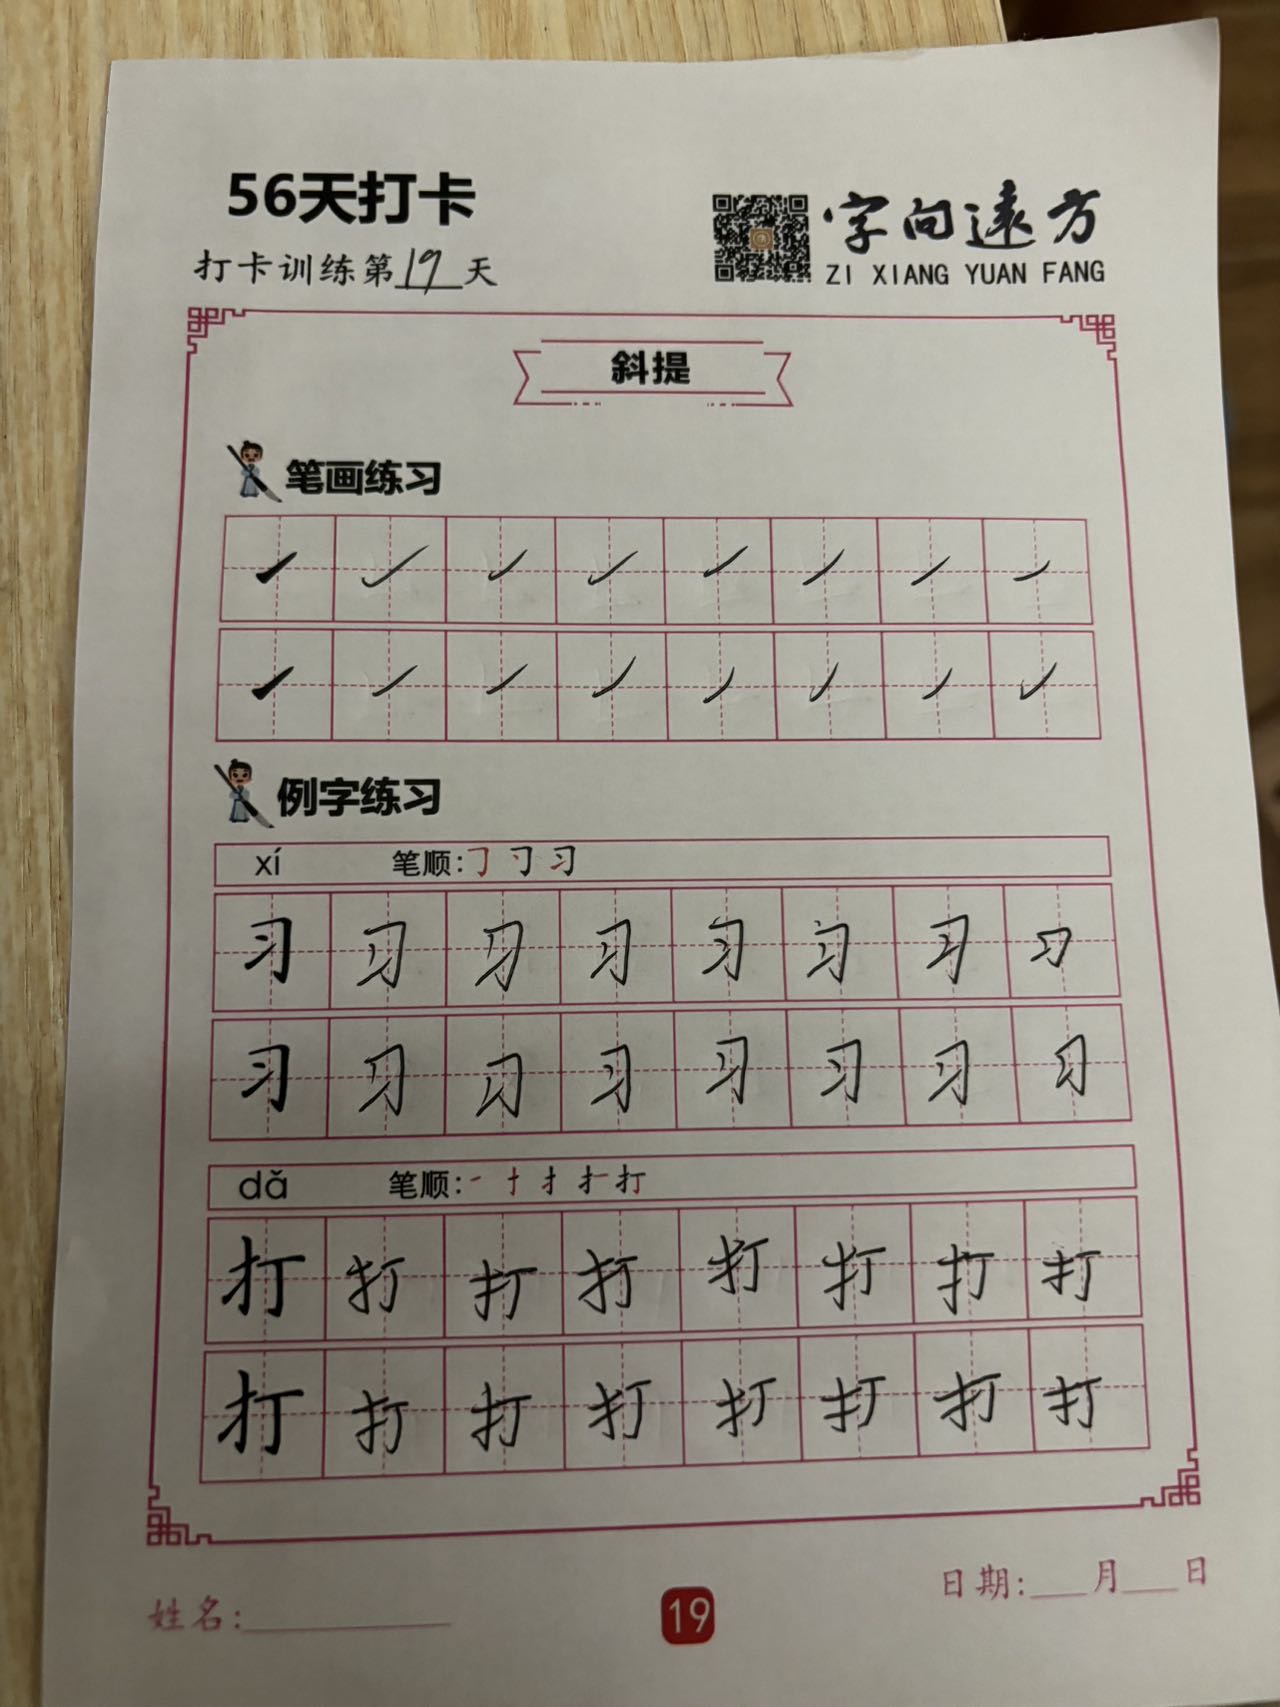 56天打卡
字向遠方
打卡训练第19天
ZI XIANG YUAN FANG
斜提
笔画练习
例字练习
xí 笔顺:㇆ 习
习 习 习 习 习 习 习 习
习 习 习 习 习 习 习 习
dǎ 笔顺:一 十 扌 打
打 打 打 打 打 打 打 打
打 打 打 打 打 打 打 打
姓名:
19
日期: 月 日